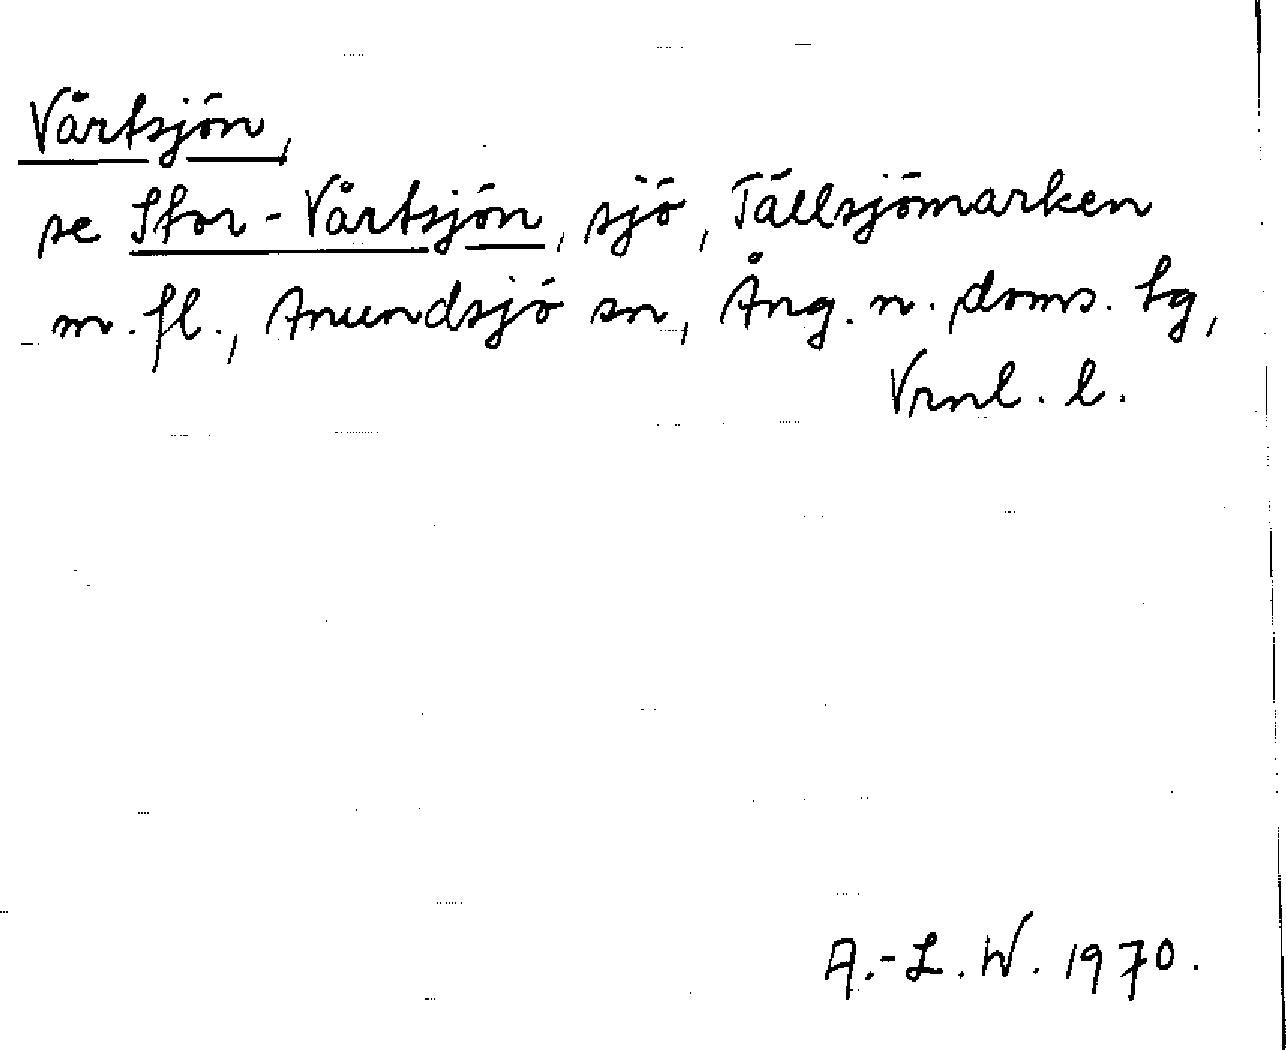 Vårtsjön,
se Stor-Vårtsjön, sjö, Tällsjömarken
m. fl., Anundsjö sn, Ång. n. doms. hg,
Vrnl. l.
A.-L. W. 1970.